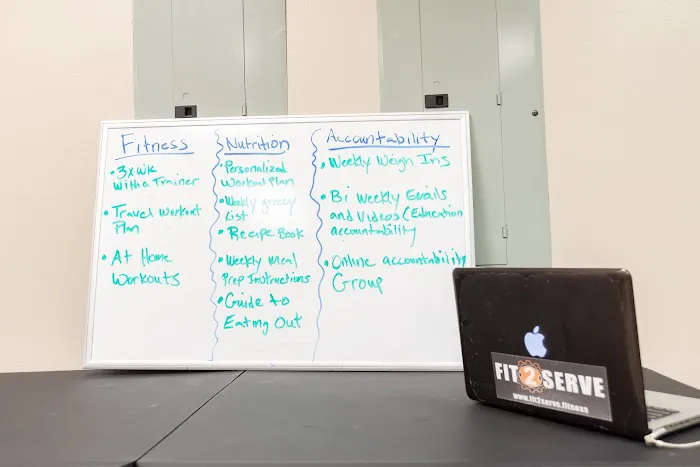 Fitness
• 3xWK
With a Trainer
• Travel Workout
Plan
• At Home
Workouts
Nutrition
• Personalized
Workout Plan
• Weekly grocery
List
• Recipe Book
• Weekly Meal
Prep Instructions
• Guide to
Eating Out
Accountability
• Weekly Weigh Ins
• Bi Weekly Emails
and Videos (Education
accountability
• Online accountability
Group
FIT2SERVE
www.fit2serve.fitness